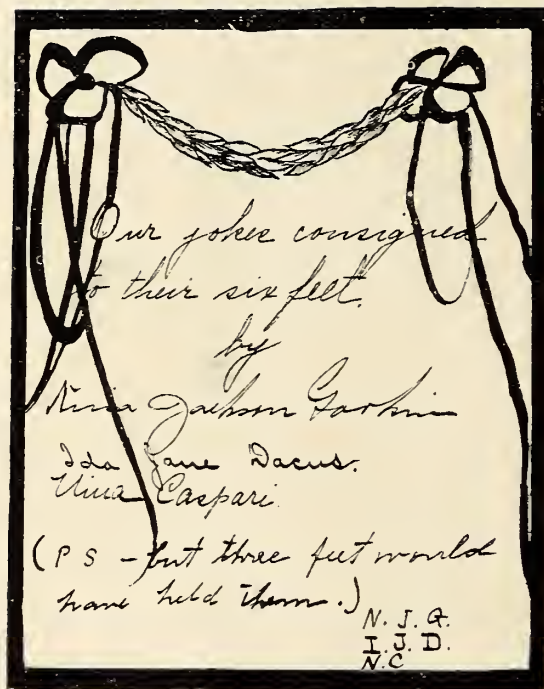 Our jokes consigned
to their six feet.
by
Nina Jackson
Ida Jane Dacus.
Nina Caspari
(P S - but three feet would
have held them.)
N. J. G.
I. J. D.
N. C